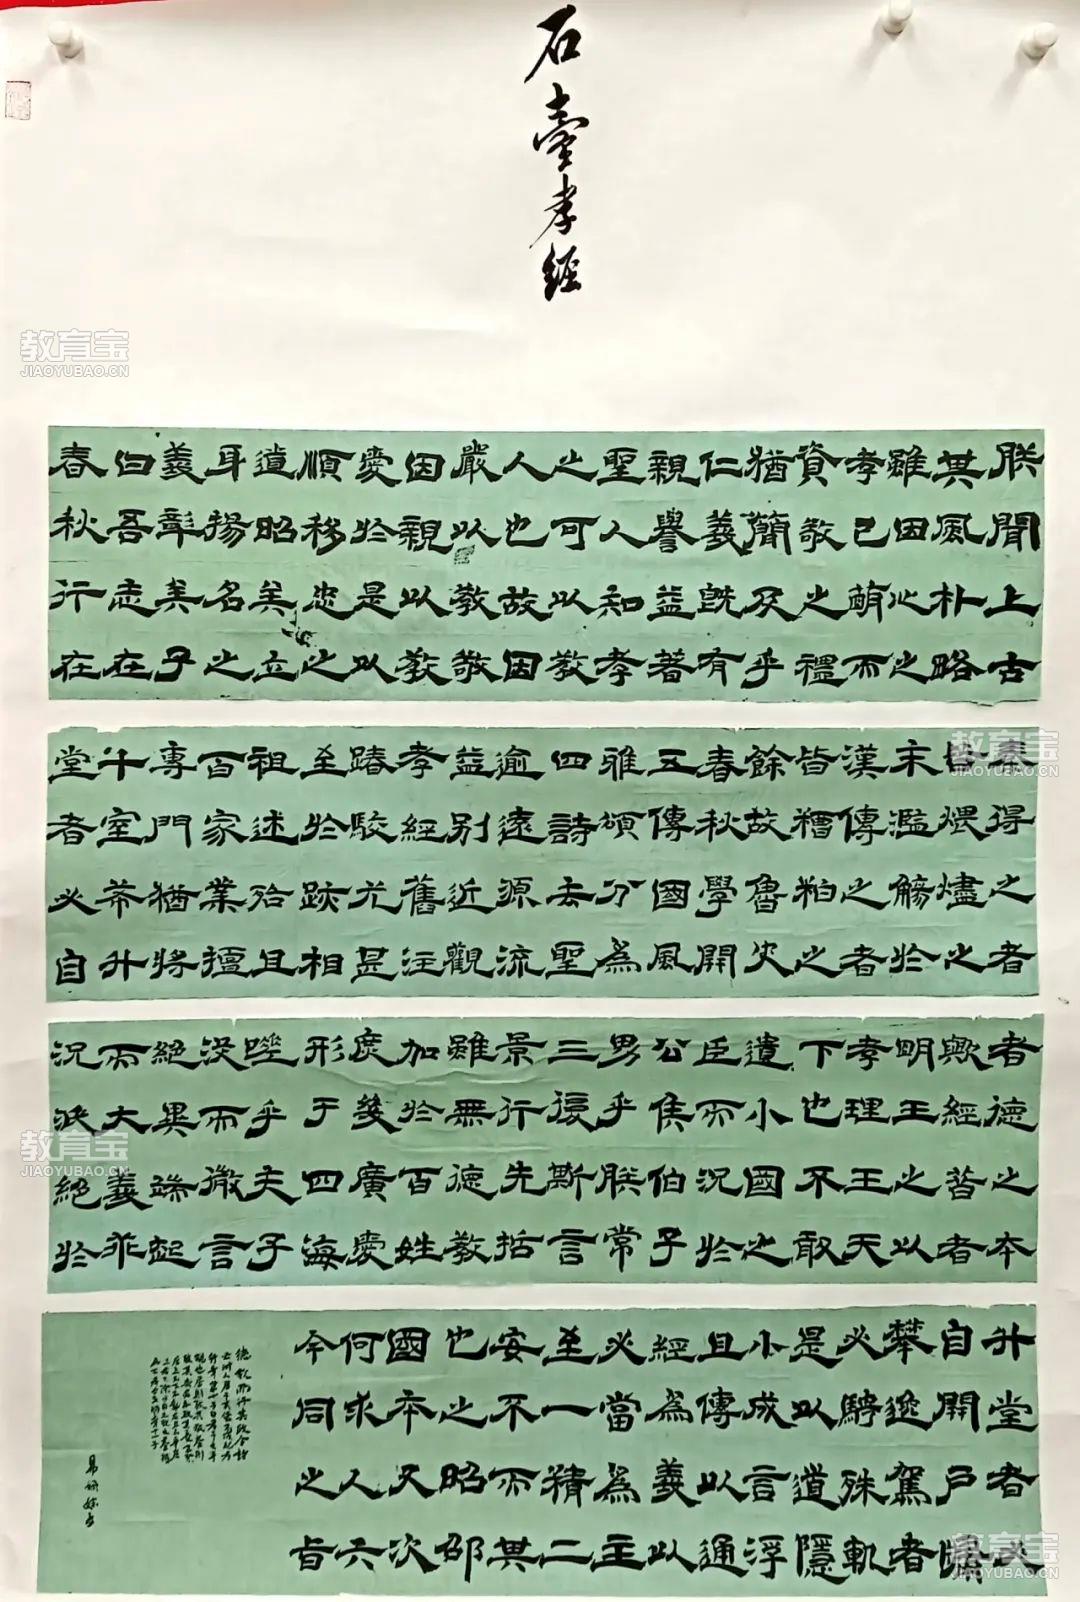 石臺孝經
朕聞上古
其風朴略
雖因心之
孝已萌而
資敬之禮
猶簡及乎
仁義既有
親譽益著
聖人知孝
之可以教
人也故因
嚴以教敬
因親以教
愛於是以
順移忠之
道昭矣立
身揚名之
義彰矣子
曰吾志在
春秋行在
秦得之者
皆煨燼之
末濫觴於
漢傳之者
皆糟粕之
餘故魯史
春秋學開
五傳國風
雅頌分為
四詩去聖
逾遠源流
益別近觀
孝經舊注
踳駮尤甚
至於跡相
祖述殆且
百家業擅
專門猶將
十室希升
堂者必自
者德之本
歟經昔者
明王之以
孝理王天
下也不敢
遺小國之
臣而況於
公侯伯子
男乎朕常
三復斯言
景行先哲
雖無德教
加於百姓
庶幾廣愛
形于四海
嗟乎夫子
沒而微言
絕異端起
而大義乖
況泆絕於
升堂者必
自開戶牖
攀逸駕者
必騁殊軌
是以道隱
小成言浮
且傳以通
經為義以
必當為主
至一精二
安不而其
也之昭邵
國本又次
何求人六
今同之旨
教育宝
JIAOYUBAO.CN
教育宝
JIAOYUBAO.CN
教育宝
JIAOYUBAO.CN
教育宝
JIAOYUBAO.CN